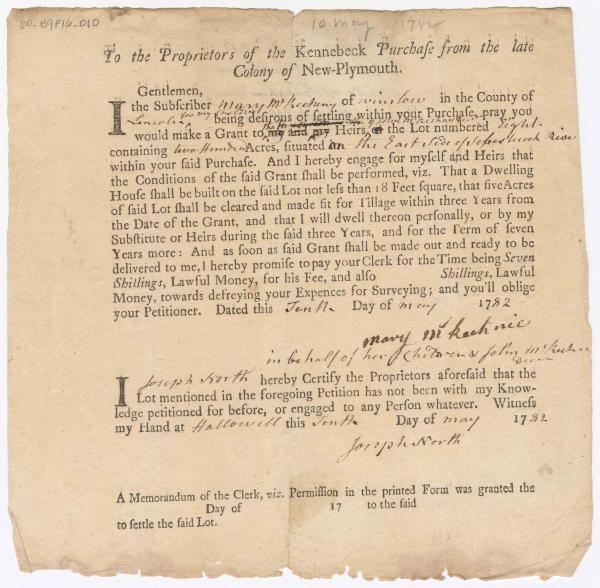 00-89F16-010
10 may 1782
To the Proprietors of the Kennebeck Purchase from the late
Colony of New-Plymouth.
Gentlemen,
I the Subscriber Mary McKechny of winslow in the County of
Lincoln being desirous of settling within your Purchase, pray you
would make a Grant to my and my Heirs, of the Lot numbered Eight
containing two Hundred Acres, situated on the East Side of Sebesticook River
within your said Purchase. And I hereby engage for myself and Heirs that
the Conditions of the said Grant shall be performed, viz. That a Dwelling
House shall be built on the said Lot not less than 18 Feet square, that five Acres
of said Lot shall be cleared and made fit for Tillage within three Years from
the Date of the Grant, and that I will dwell thereon personally, or by my
Substitute or Heirs during the said three Years, and for the Term of seven
Years more: And as soon as said Grant shall be made out and ready to be
delivered to me, I hereby promise to pay your Clerk for the Time being Seven
Shillings, Lawful Money, for his Fee, and also Shillings, Lawful
Money, towards defreying your Expences for Surveying; and you'll oblige
your Petitioner. Dated this Tenth Day of may 1782
mary McKechnie
in behalf of her Children & John McKechnie
Decd
I Joseph North hereby Certify the Proprietors aforesaid that the
Lot mentioned in the foregoing Petition has not been with my Know-
ledge petitioned for before, or engaged to any Person whatever. Witness
my Hand at Hallowell this Tenth Day of may 1782
Joseph North
A Memorandum of the Clerk, viz. Permission in the printed Form was granted the
Day of 17 to the said
to settle the said Lot.